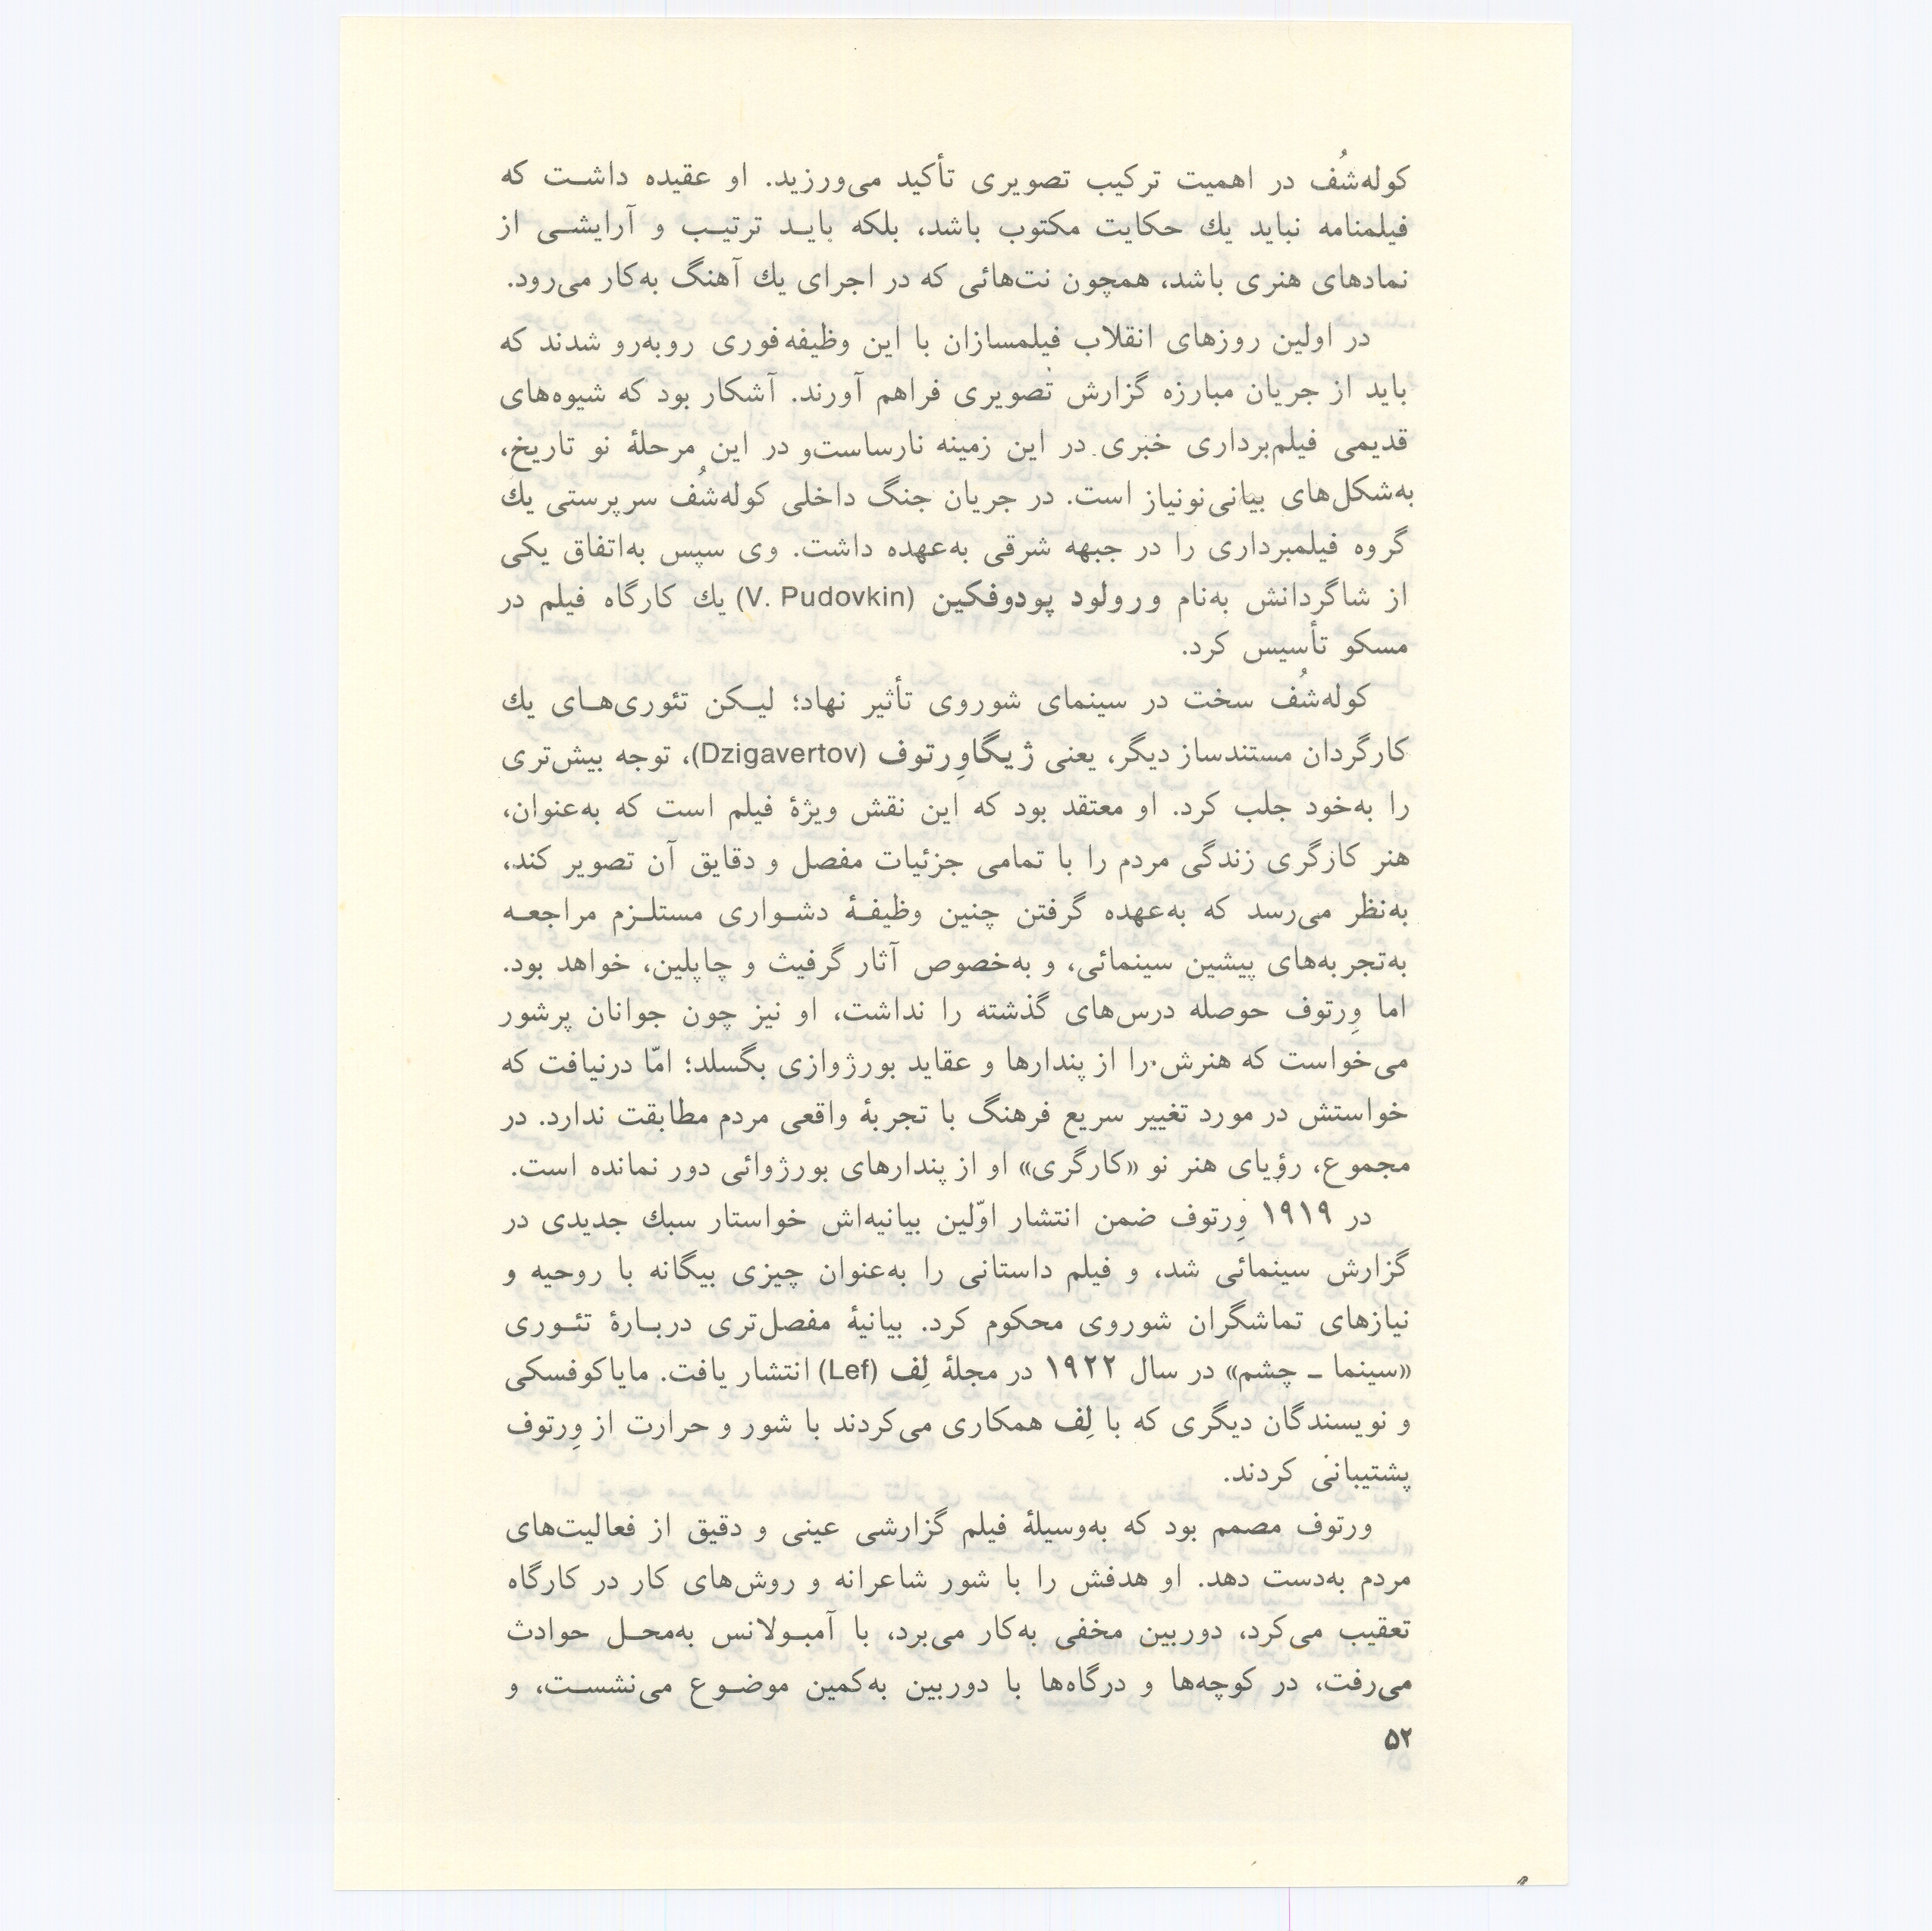 کوله‌شُف در اهمیت ترکیب تصویری تأکید می‌ورزید. او عقیده داشت که
فیلمنامه نباید یك حکایت مکتوب باشد، بلکه باید ترتیب و آرایشی از
نمادهای هنری باشد، همچون نت‌هائی که در اجرای یك آهنگ به‌کار می‌رود.
در اولین روزهای انقلاب فیلمسازان با این وظیفه فوری روبه‌رو شدند که
باید از جریان مبارزه گزارش تصویری فراهم آورند. آشکار بود که شیوه‌های
قدیمی فیلم‌برداری خبری در این زمینه نارساست‌و در این مرحلهٔ نو تاریخ،
به‌شکل‌های بیانی‌نونیاز است. در جریان جنگ داخلی کوله‌شُف سرپرستی یك
گروه فیلمبرداری را در جبهه شرقی به‌عهده داشت. وی سپس به‌اتفاق یکی
از شاگردانش به‌نام ورولود پودوفکین (V. Pudovkin) یك کارگاه فیلم در
مسکو تأسیس کرد.
کوله‌شُف سخت در سینمای شوروی تأثیر نهاد؛ لیکن تئوری‌های یك
کارگردان مستندساز دیگر، یعنی ژیگاوِرتوف (Dzigavertov)، توجه بیش‌تری
را به‌خود جلب کرد. او معتقد بود که این نقش ویژهٔ فیلم است که به‌عنوان،
هنر کازگری زندگی مردم را با تمامی جزئیات مفصل و دقایق آن تصویر کند،
به‌نظر می‌رسد که به‌عهده گرفتن چنین وظیفهٔ دشواری مستلزم مراجعه
به‌تجربه‌های پیشین سینمائی، و به‌خصوص آثار گرفیث و چاپلین، خواهد بود.
اما وِرتوف حوصله درس‌های گذشته را نداشت، او نیز چون جوانان پرشور
می‌خواست که هنرش را از پندارها و عقاید بورژوازی بگسلد؛ امّا درنیافت که
خواستش در مورد تغییر سریع فرهنگ با تجربهٔ واقعی مردم مطابقت ندارد. در
مجموع، رؤیای هنر نو «کارگری» او از پندارهای بورژوائی دور نمانده است.
در ۱۹۱۹ وِرتوف ضمن انتشار اوّلین بیانیه‌اش خواستار سبك جدیدی در
گزارش سینمائی شد، و فیلم داستانی را به‌عنوان چیزی بیگانه با روحیه و
نیازهای تماشگران شوروی محکوم کرد. بیانیهٔ مفصل‌تری دربارهٔ تئوری
«سینما ـ چشم» در سال ۱۹۲۲ در مجلهٔ لِف (Lef) انتشار یافت. مایاکوفسکی
و نویسندگان دیگری که با لِف همکاری می‌کردند با شور و حرارت از وِرتوف
پشتیبانی کردند.
ورتوف مصمم بود که به‌وسیلهٔ فیلم گزارشی عینی و دقیق از فعالیت‌های
مردم به‌دست دهد. او هدفش را با شور شاعرانه و روش‌های کار در کارگاه
تعقیب می‌کرد، دوربین مخفی به‌کار می‌برد، با آمبولانس به‌محل حوادث
می‌رفت، در کوچه‌ها و درگاه‌ها با دوربین به‌کمین موضوع می‌نشست، و
۵۲